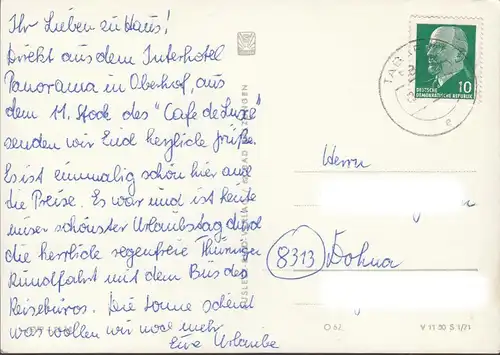 Ihr Lieben zu Haus!
Direkt aus dem Interhotel
Panorama in Oberhof, aus
dem 11. Stock des "Cafe de Luxe"
senden wir Euch herzliche Grüße.
Es ist einmalig schön hier auf
die Preise. Es war und ist heute
unser schönster Urlaubstag durch
die herrliche regenfreie Thüringer
Rundfahrt mit dem Bus des
Reisebüros. Die Sonne scheint
was wollen wir noch mehr
Eure Urlauber
10
DEUTSCHE
DEMOKRATISCHE REPUBLIK
Herrn
8313 Dohna
O 62.
V 11 50 S 1/71